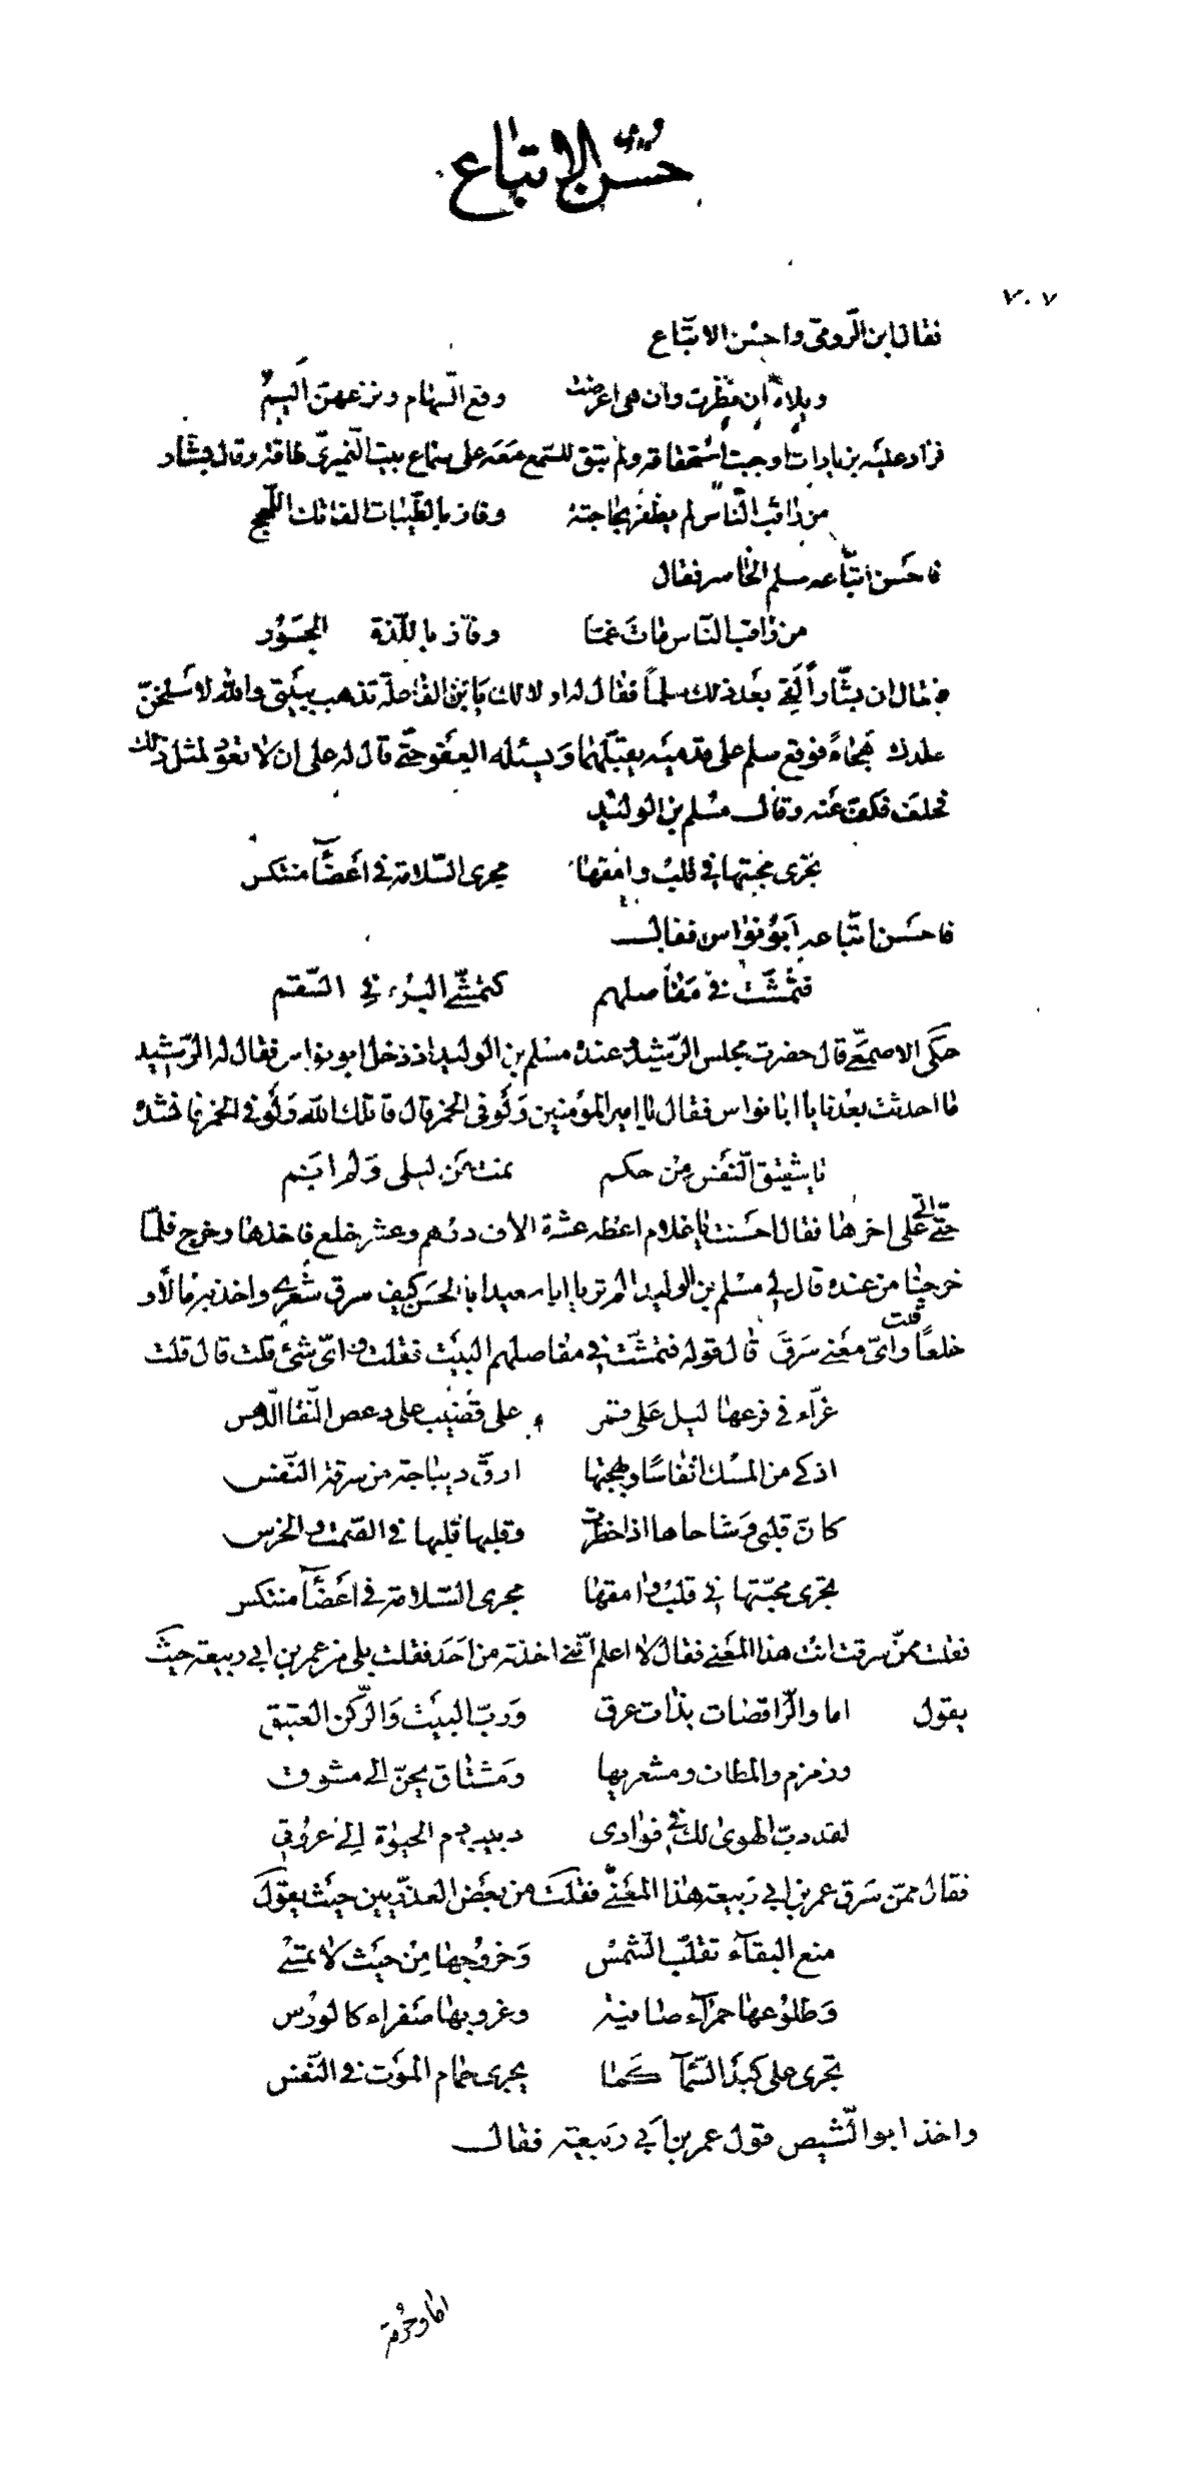 حُسْنُ الاتباع
٧٠٧
فقال ابن الرّومىّ واحسْن الاتّباع
ويلاه ان نظرت وان هى اعرضت وقع السّهام ونزعهنّ اَليمٌ
فزاد عليه بزيادات اوجبت استحقاقه ولم يبق للسّمع مَعَه على سماع بيت النّميرىّ طاقة وقال بشار
من راقب النّاس لم يظفر بحاجته وفاز بالطّيّبات الفاتك اللّهج
فاحسَن اتّباعه سلم الخاسر فقال
من راقب النّاس مات غمّا وفاز باللّذة الجسَوُر
فيقال ان بشّاراً لقى بعَد ذلك سلماً فقال له اولا لك يا بن الفاعلة تذهب ببيتى والله لاسلخنّ
جلدك هجاءً فوقع سلم على قدميَه يقبّلهما وَيسئله العفو حتّى قال له على ان لا تعود لمثل ذلك
فحلف فكفّ عنه وقال مسْلم بن الوليْد
تجرى محبّتها فى قلبْ وامقها مجرى السّلامة فى اعَضَآ منتكس
فاحسَن اتّباعه ابَوُ نوٰاس فقال
فتمْشَّت فى مَفاصلهم كتمشّى البُرء فى السّقم
حكَى الاصمعّى قال حضرت مجلس الرّشيد وعنده مسْلم بن الوليد اذ دخل ابو نواس فقال له الرّشيد
ما احدثت بعْدنا يا ابا نواس فقال يا امير المؤمنين وَلَو فى الخمر قال قاتلك الله وَلَو فى الخمر فانشده
يا شقيق النّفسِ مِن حكم نمت عَن ليلى وَلم اَنم
حتّى اتى على اخرها فقال احسَنت يا غلام اعطه عشرة الاف درْهم وعشر خلع فاخذها وخرج فلمّا
خرجنا من عنده قال لى مسْلم بن الوليد الم تر يا ابا سعيد ابا الحسَن كيف سرق شعْرى واخذ به مالاً و
خلعًا قلت واىّ مَعنى سَرقَ قال قوله فتمشّت فى مفاصلهم البيَت فقلت واىّ شئ قلت قال قلت
غرّآء فى فرعهٰا ليل عَلى قمر على قَضيْب على دعص النّقا الدّهس
اذكى من المسْك انفاسًا وبهجتها ارقّ ديباجة من رقة النّفس
كانّ قلبى وشاحاها اذا خطرت وقلبها قلبها فى الصّمت والخرس
تجرى محبّتها فى قلبْ وامقها مجرى السّلامة فى اعَضَآ منتكس
فقلت ممّن سرقت انت هذا المَعنى فقال لا اعلم انّنى اخذته من احَد فقلت بلى من عمر بن ابى ربيعة حيثَ
يقول اما والرّاقصات بذٰات عرق وَربّ البيَت وَالرّكن العتيق
وزمزم والمطاف ومشعريها ومَشتاق يحنّ الى مشوق
لقد دبّ الهوىٰ لك فى فؤادى دبيب دم الحيوٰة اِلى عروُقى
فقال ممّن سَرق عمر بن ابى رَبيعة هٰذا المعَنى فقلتَ من بعَض العذريّين حيَث يقوَل
منع البقآء تقلّب الشّمسْ وَخروُجهٰا مِنْ حيَث لا تمسْى
وَطلوُعهٰا حمرآء صٰافية وغروبهٰا صَفراء كالورْس
تجرى على كبَد السّمآ كَمٰا يجرى حمٰام الموَت فى النّفس
واخذ ابو الشّيص قول عمر بن ابَى رَبيعة فقال
امٰا وحُرمة